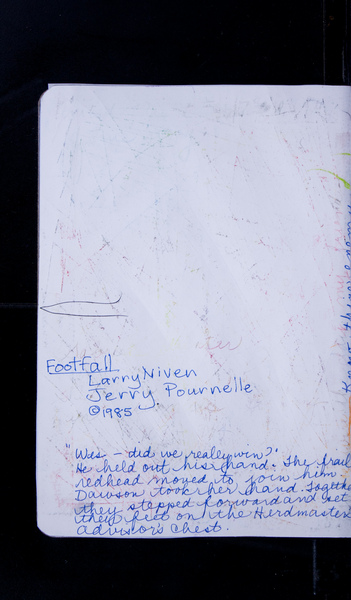 Footfall
Larry Niven
Jerry Pournelle
©1985
"Was – did we realey win?"
He held out his hand. The frail
redhead moved to join him.
Dawson took her hand. Togethe
they stepped forward and set
their feet on the Herdmaster
advisor's chest.